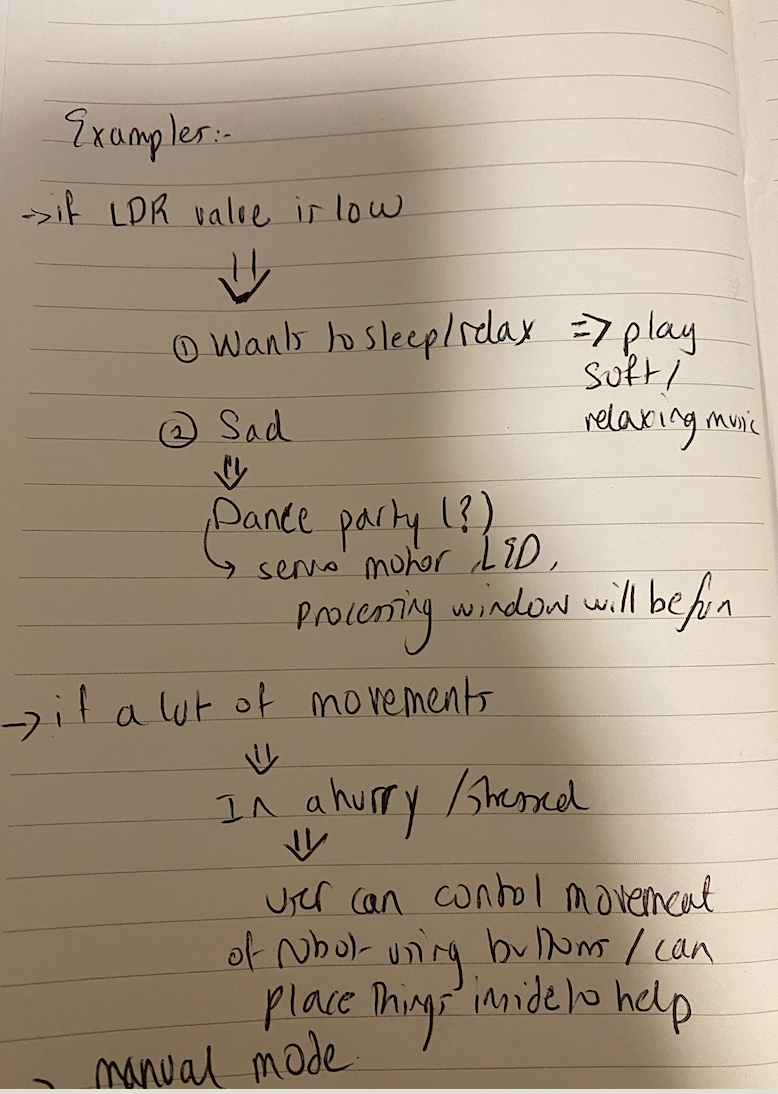 Examples:-
→ if LDR value is low
⇓
① Wants to sleep/relax => play
soft/
relaxing music
② Sad
⇓
Dance party (?)
↳ servo motor, LED,
processing window will be fun
→ if a lot of movements
⇓
In a hurry / stressed
⇓
User can control movement
of robot using buttons / can
place things inside to help
→ manual mode